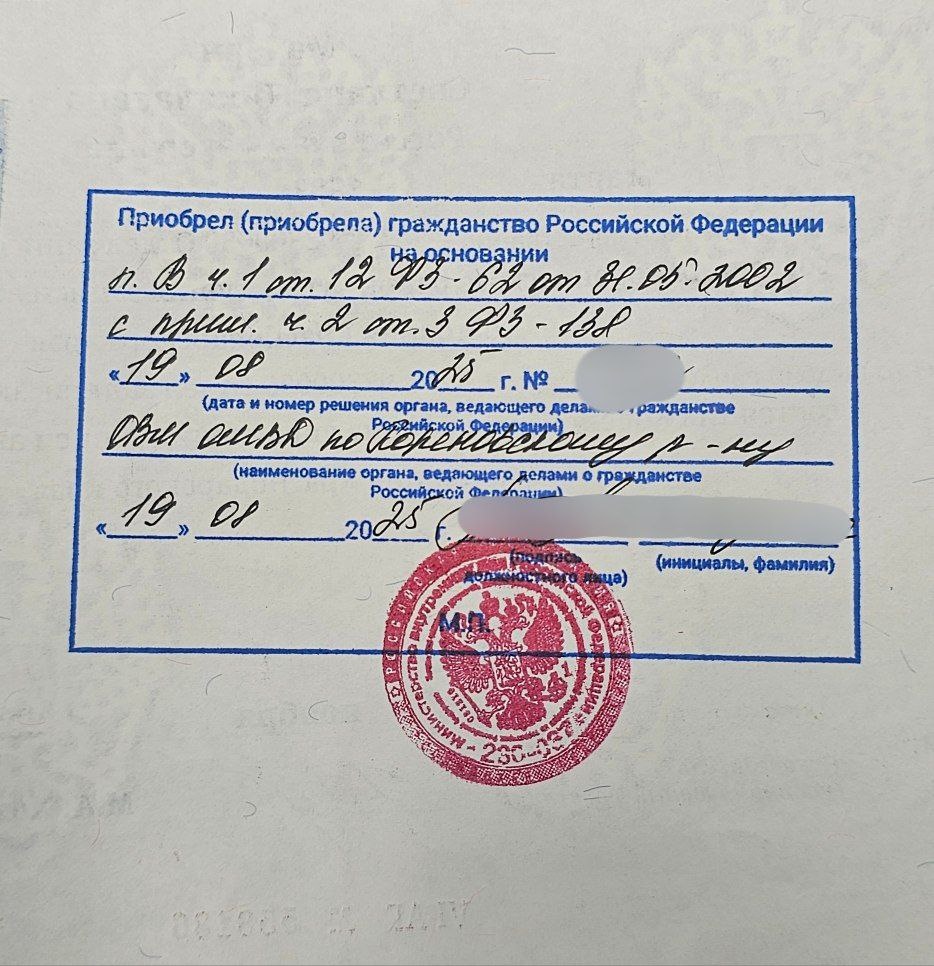 Приобрел (приобрела) гражданство Российской Федерации
на основании
п. В ч. 1 ст. 12 ФЗ - 62 от 31.05.2002
с прим. ч. 2 ст. 3 ФЗ - 138
«19» 08 2025 г. №
(дата и номер решения органа, ведающего делами о гражданстве
Российской Федерации)
ОВМ ОМВД по Кореновскому р-ну
(наименование органа, ведающего делами о гражданстве
Российской Федерации)
«19» 08 2025 г.
(подпись
должностного лица)
(инициалы, фамилия)
М.П.
Министерство внутренних Российской Федерации